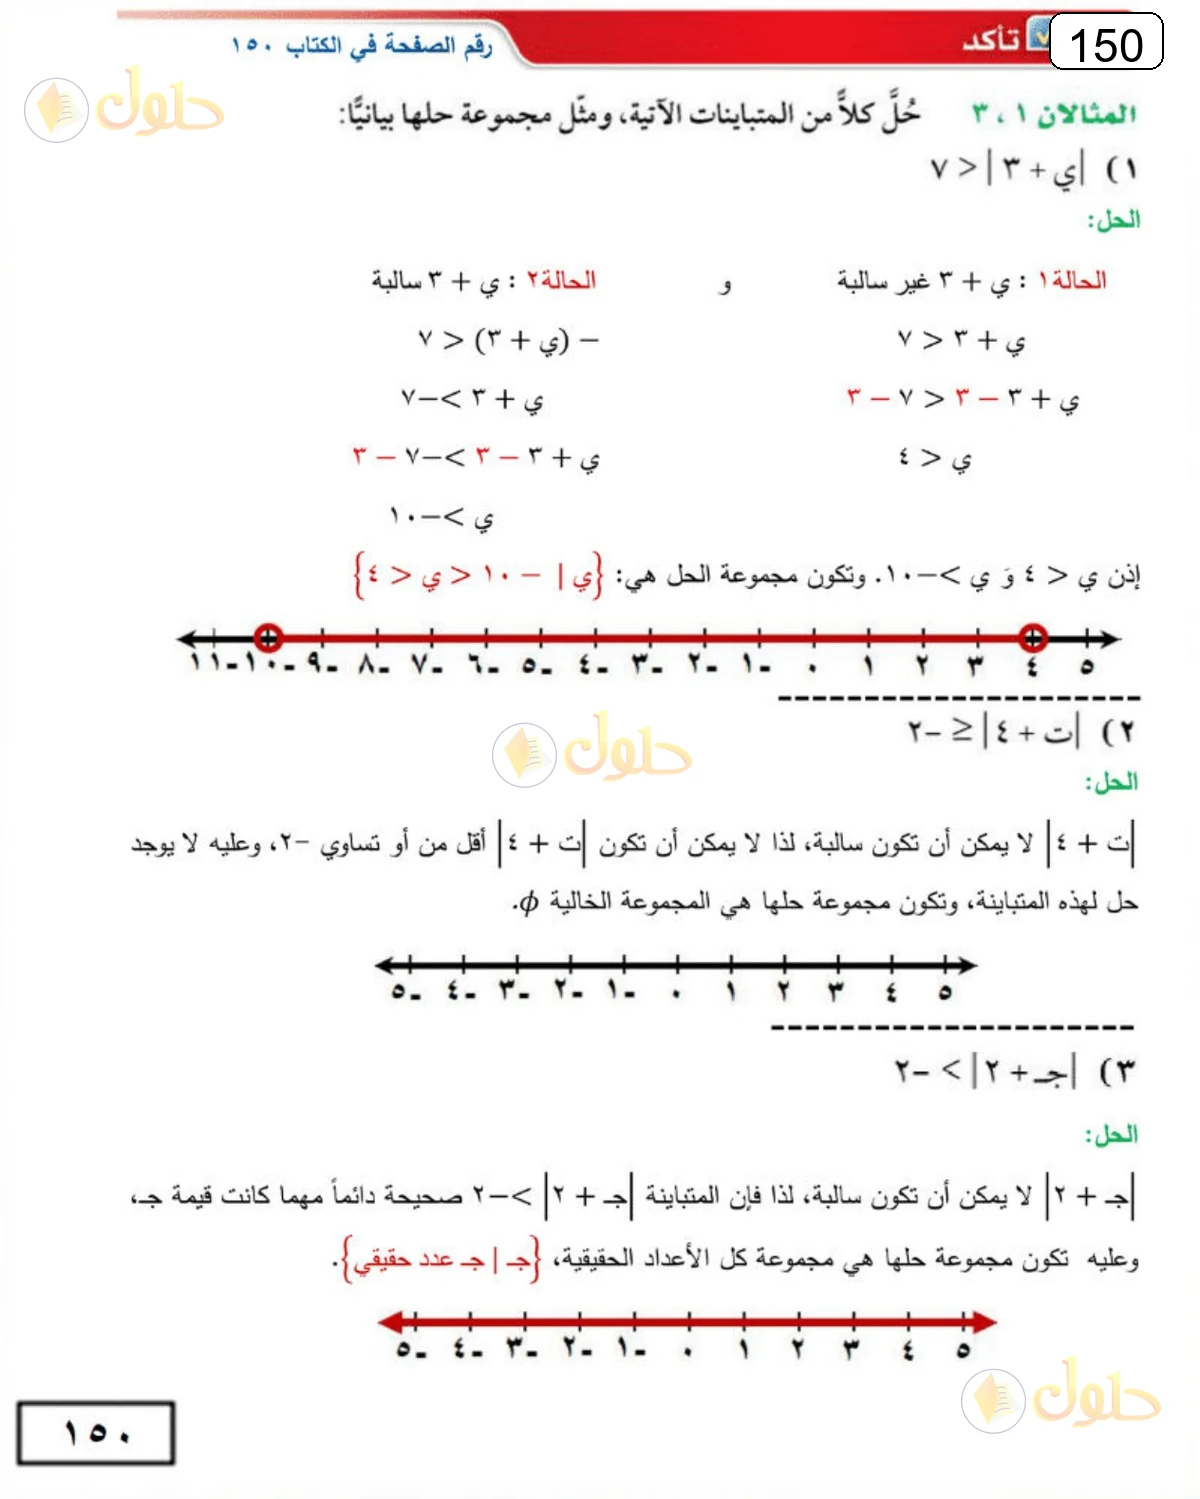 150
تأكد
رقم الصفحة في الكتاب ١٥٠
حلول
المثالان ١ ، ٣ حُلَّ كلاًّ من المتباينات الآتية، ومثّل مجموعة حلها بيانيًّا:
١) |ي + ٣| < ٧
الحل:
الحالة١ : ي + ٣ غير سالبة و الحالة٢ : ي + ٣ سالبة
ي + ٣ < ٧ − (ي + ٣) < ٧
ي + ٣ − ٣ < ٧ − ٣ ي + ٣ > −٧
ي < ٤ ي + ٣ − ٣ > −٧ − ٣
ي > −١٠
إذن ي < ٤ وَ ي > −١٠. وتكون مجموعة الحل هي: {ي | − ١٠ < ي < ٤}
-١١ -١٠ -٩ -٨ -٧ -٦ -٥ -٤ -٣ -٢ -١ ٠ ١ ٢ ٣ ٤ ٥
٢) |ت + ٤| ≤ -٢
حلول
الحل:
|ت + ٤| لا يمكن أن تكون سالبة، لذا لا يمكن أن تكون |ت + ٤| أقل من أو تساوي −٢، وعليه لا يوجد
حل لهذه المتباينة، وتكون مجموعة حلها هي المجموعة الخالية ϕ.
-٥ -٤ -٣ -٢ -١ ٠ ١ ٢ ٣ ٤ ٥
٣) |جـ + ٢| > -٢
الحل:
|جـ + ٢| لا يمكن أن تكون سالبة، لذا فإن المتباينة |جـ + ٢| > −٢ صحيحة دائماً مهما كانت قيمة جـ،
وعليه تكون مجموعة حلها هي مجموعة كل الأعداد الحقيقية، {جـ | جـ عدد حقيقي}.
-٥ -٤ -٣ -٢ -١ ٠ ١ ٢ ٣ ٤ ٥
حلول
١٥٠